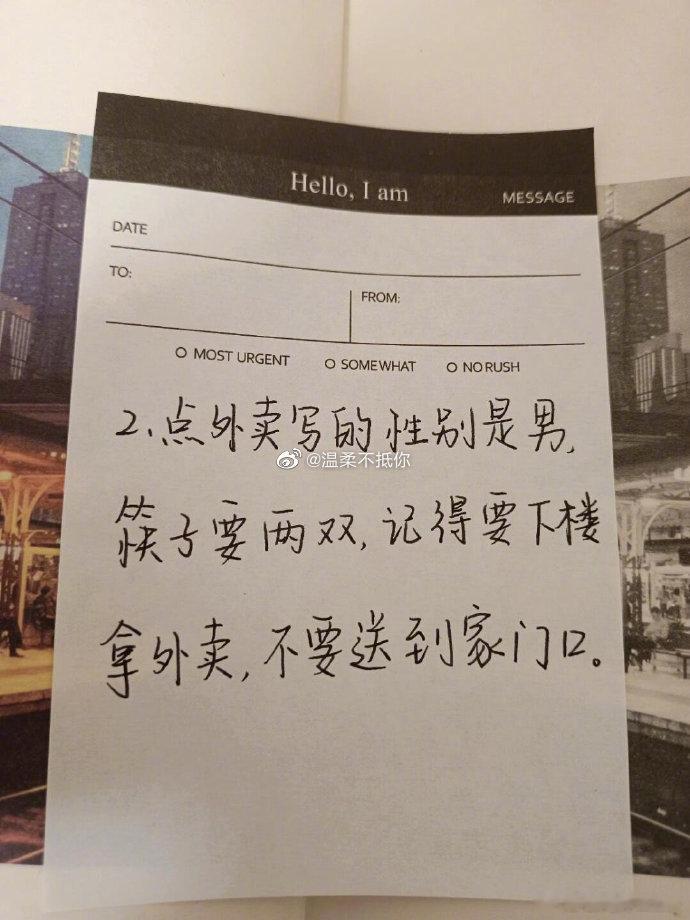 Hello, I am
MESSAGE
DATE
TO:
FROM:
O MOST URGENT
O SOMEWHAT
O NO RUSH
2、点外卖写的性别是男,
@温柔不抵你
筷子要两双,记得要下楼
拿外卖,不要送到家门口。